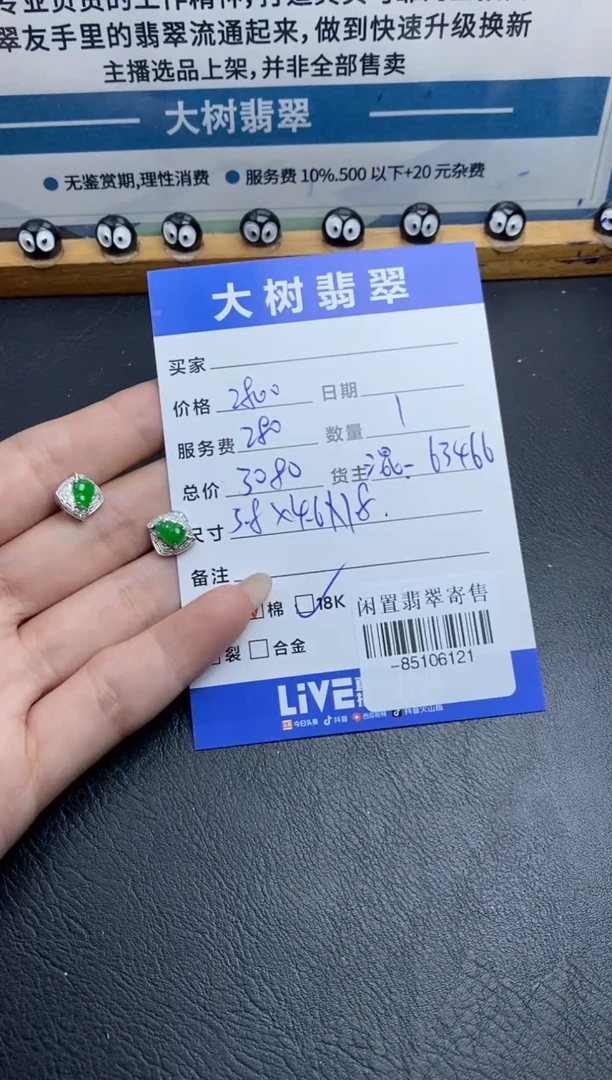 翠友手里的翡翠流通起来，做到快速升级换新
主播选品上架，并非全部售卖
大树翡翠
无鉴赏期,理性消费 服务费 10%.500 以下+20 元杂费
大树翡翠
买家
价格 2800 日期
服务费 280 数量 1
总价 3080 货主 混- 63466
尺寸 3.8×4.6×1.8
备注
棉 18K
裂 合金
闲置翡翠寄售
-85106121
LiVE
今日头条 抖音 西瓜视频 抖音火山版